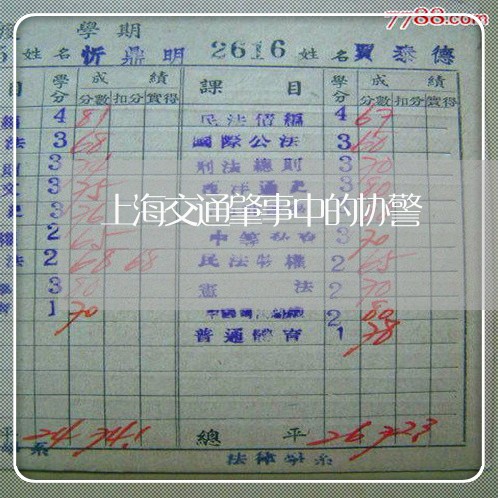 7788.com
學期
姓名 忻鼎明 2616 姓名 賈泰德
目 學分 成績 課目 學分 成績
分數 扣分 實得 分數 扣分 實得
4 81 民法債編 4 67
法 3 68 國際公法 3 60
3 刑法總則 3 70
3 75 西洋通史 3 80
3 76
上海交通肇事中的协警
2 65 3 70
法 2 68 68 民法物權 2 65
3 80 憲法 2 70
1 70 2 80
普通體育 1 78
平 24 74.1 總平 26 72.3
系 法律學系